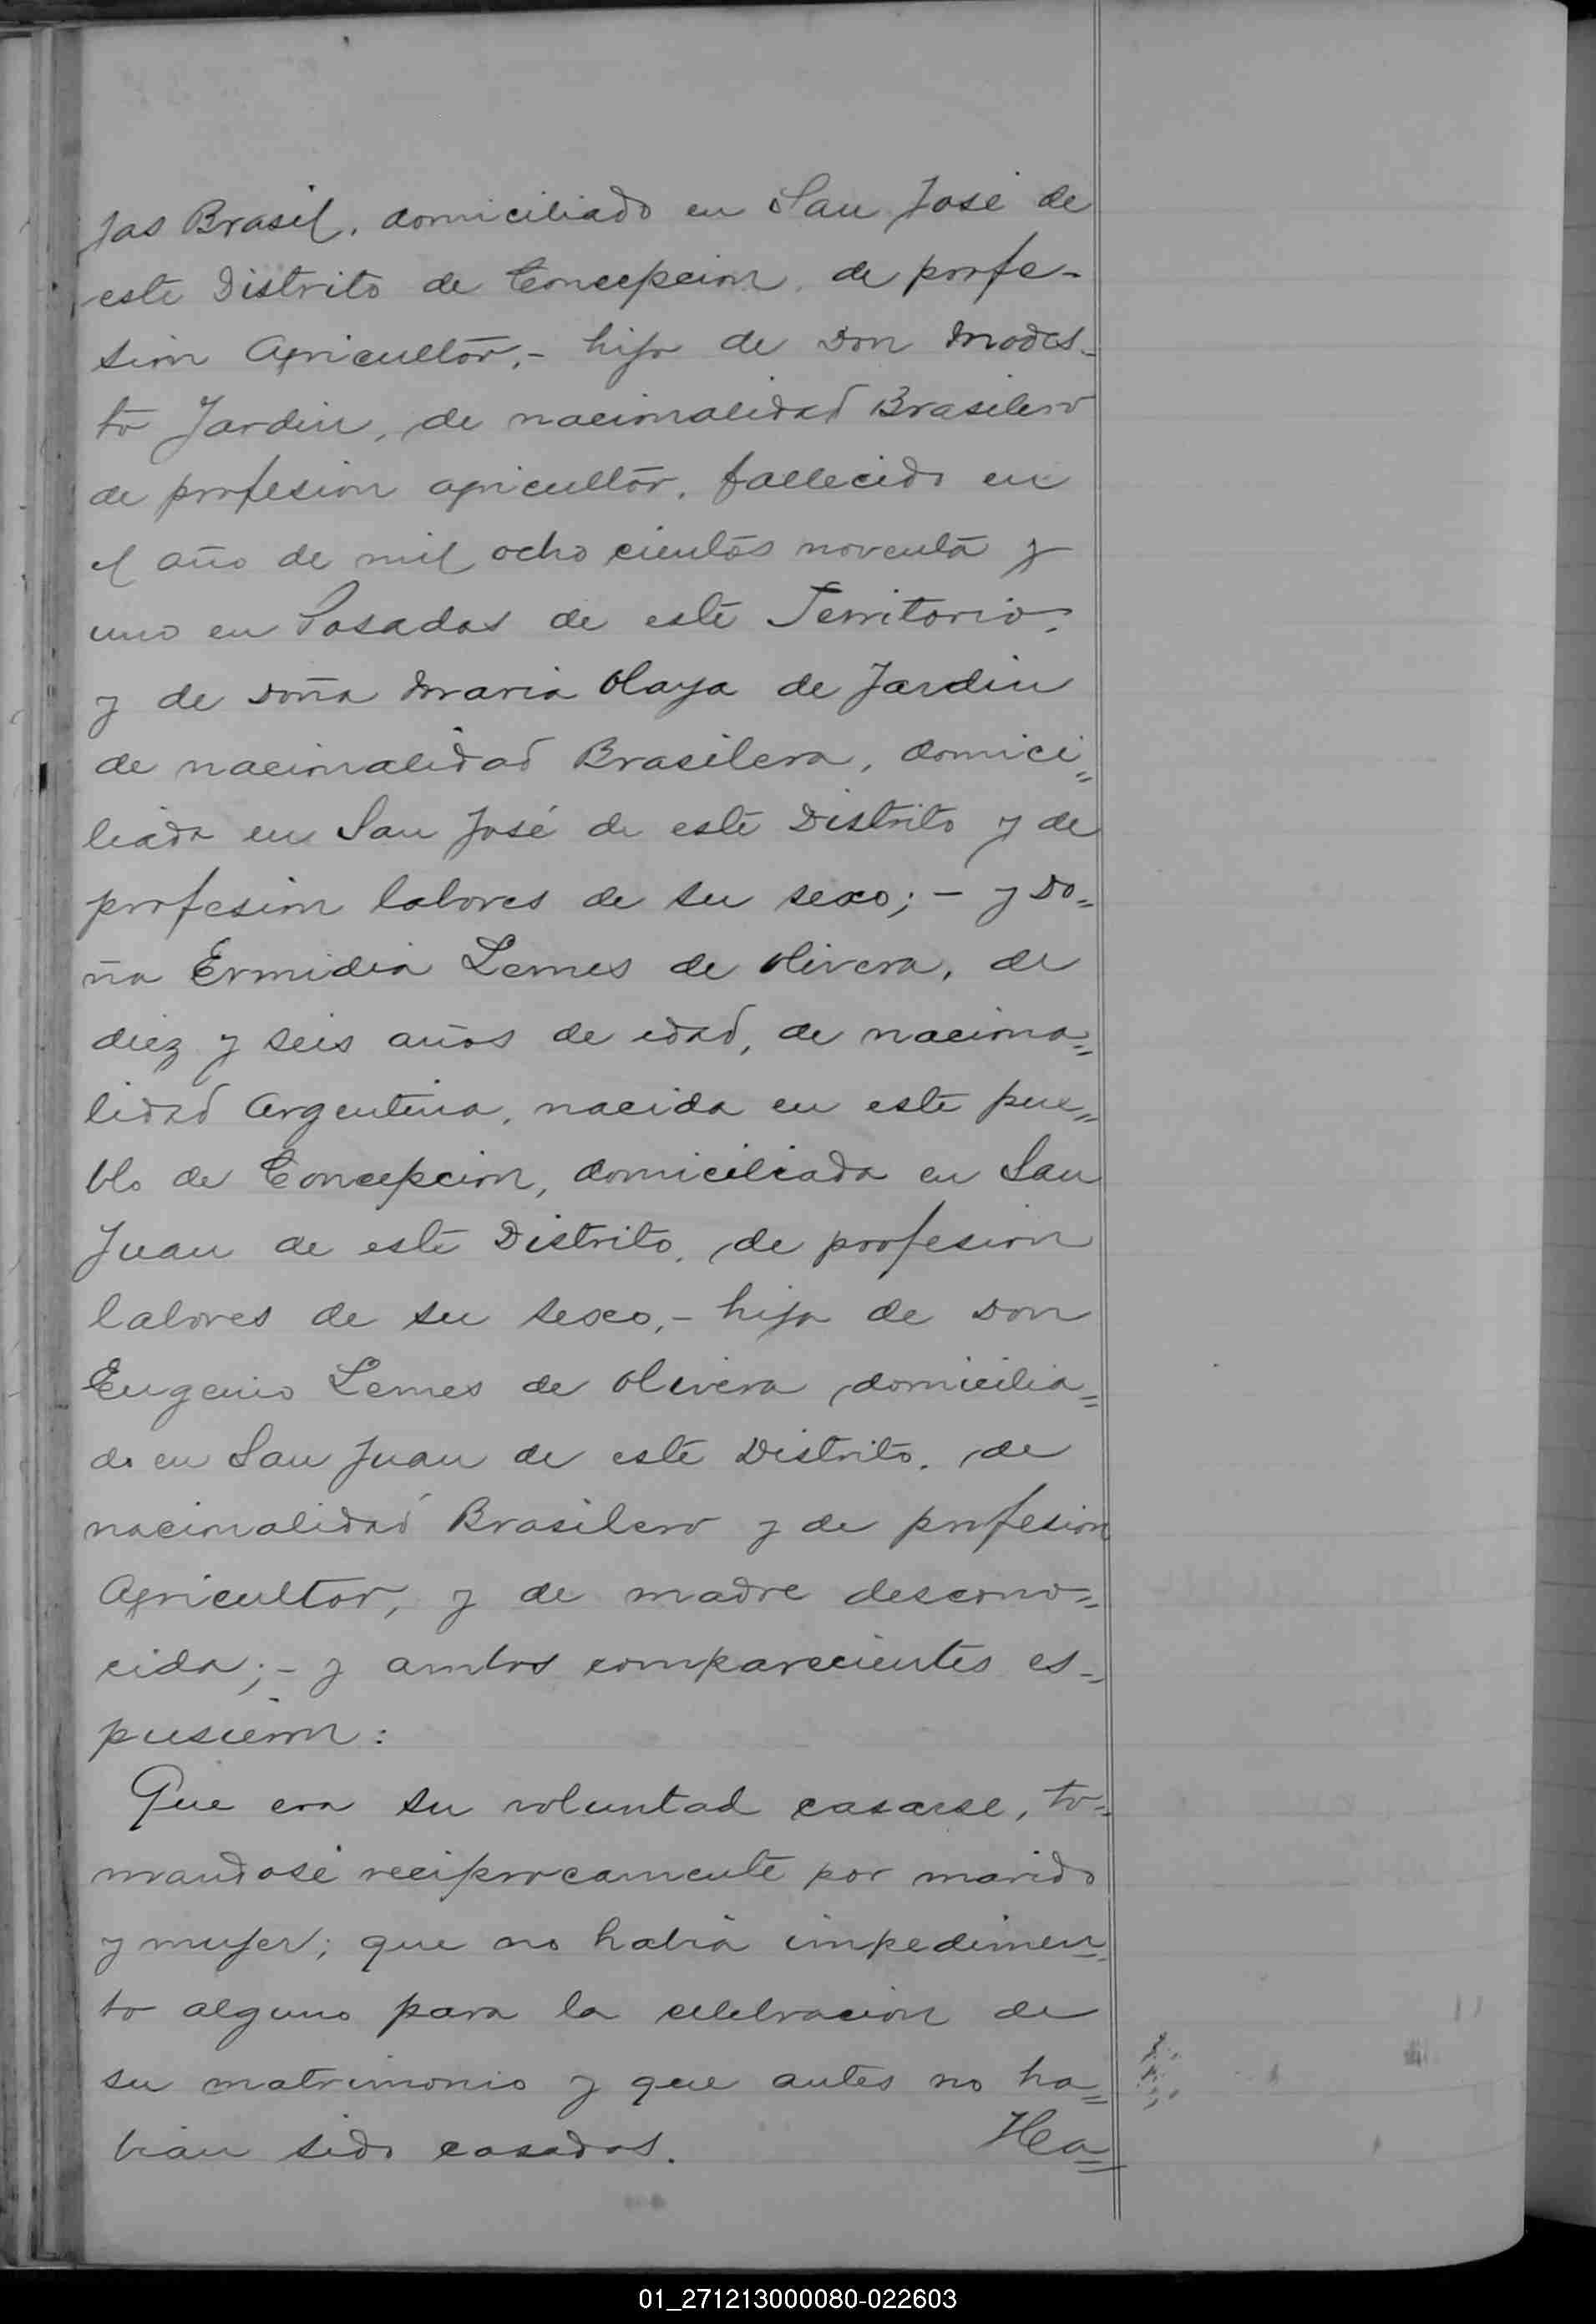 jas Brasil, domiciliado en San José de
este Distrito de Concepcion, de profe-
sion Agricultor,- hijo de Don Modes-
to Jardin, de nacionalidad Brasilero
de profesion agricultor, fallecido en
el año de mil ocho cientos noventa y
uno en Posadas de este Territorio,
y de Doña Maria Olaya de Jardin
de nacionalidad Brasilera, domici=
liada en San José de este Distrito y de
profesion labores de su sexo; - y Do=
ña Ermidia Lemes de Olivera, de
diez y seis años de edad, de naciona=
lidad Argentina, nacida en este pue=
blo de Concepcion, domiciliada en San
Juan de este Distrito, de profesion
labores de su sexo,- hija de Don
Eugenio Lemes de Olivera domicilia=
do en San Juan de este Distrito, de
nacionalidad Brasilero y de profesion
Agricultor, y de madre descono=
cida;- y ambos comparecientes es=
pusieron:
Que era su voluntad casarse, to=
mandose reciprocamente por marido
y mujer; que no habia impedimen=
to alguno para la celebracion de
su matrimonio y que antes no ha=
bian sido casados. Ha=
01_271213000080-022603